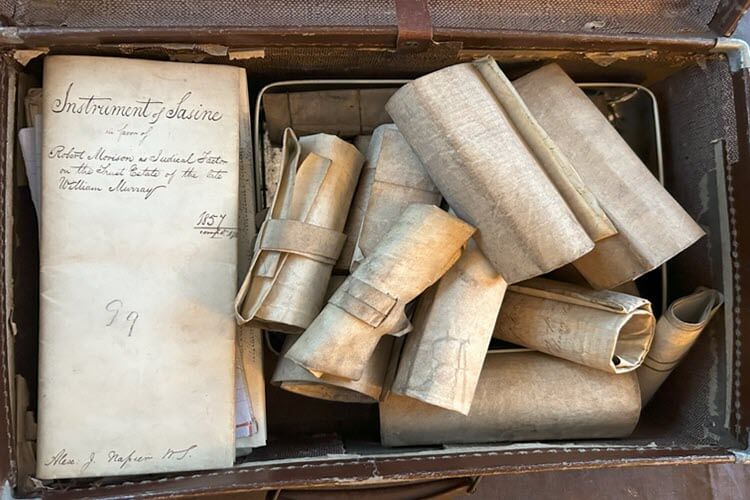 Instrument of Sasine
in favor of
Robert Morison as Judicial Factor
on the Trust Estate of the late
William Murray
1857
99
Alex. J. Napier W.S.